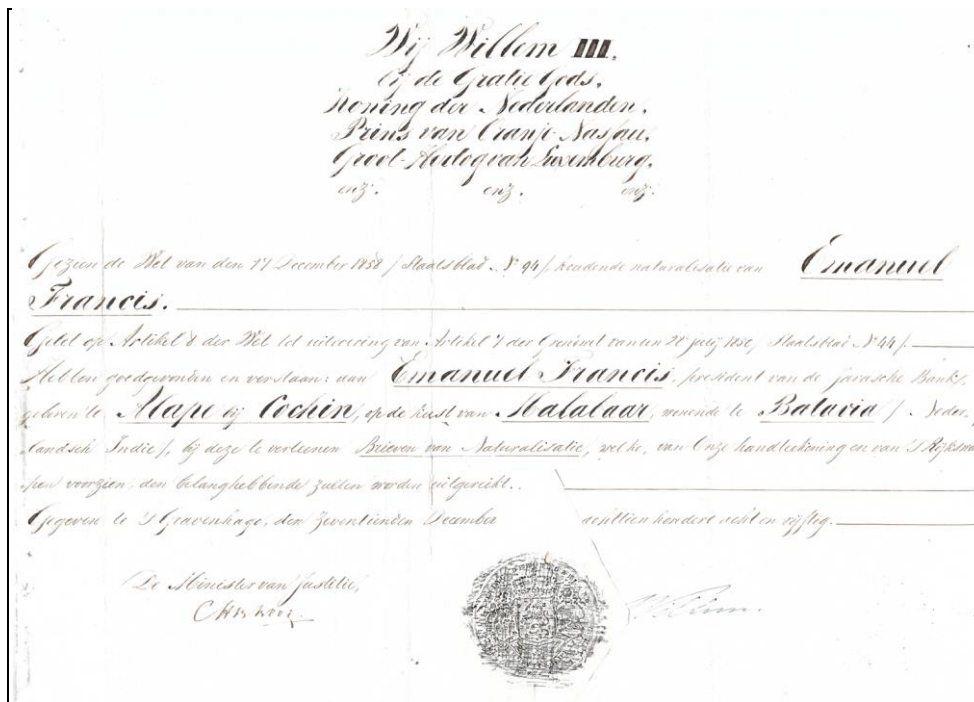 Wij Willem III,
bij de Gratie Gods,
Koning der Nederlanden,
Prins van Oranje-Nassau,
Groot-Hertog van Luxemburg,
enz. enz. enz.
Gezien de Wet van den 17 December 1858 / Staatsblad No 94 /, houdende naturalisatie van Emanuel
Francis.
Gelet op Artikel 8 der Wet tot uitvoering van Artikel 7 der Grondwet van den 28 Julij 1850 / Staatsblad No 44 /.
Hebben goedgevonden en verstaan: aan Emanuel Francis, president van de javasche Bank,
geboren te Alape bij Cochin, op de kust van Malabaar, wonende te Batavia / Neder-
landsch Indie /, bij deze te verleenen Brieven van Naturalisatie, welke, van Onze handteekening en van 's Rijks wa-
pen voorzien, den belanghebbende zullen worden uitgereikt.
Gegeven te 's Gravenhage, den Zeventienden December achttien honderd acht en vijftig.
De Minister van Justitie,
Willem.